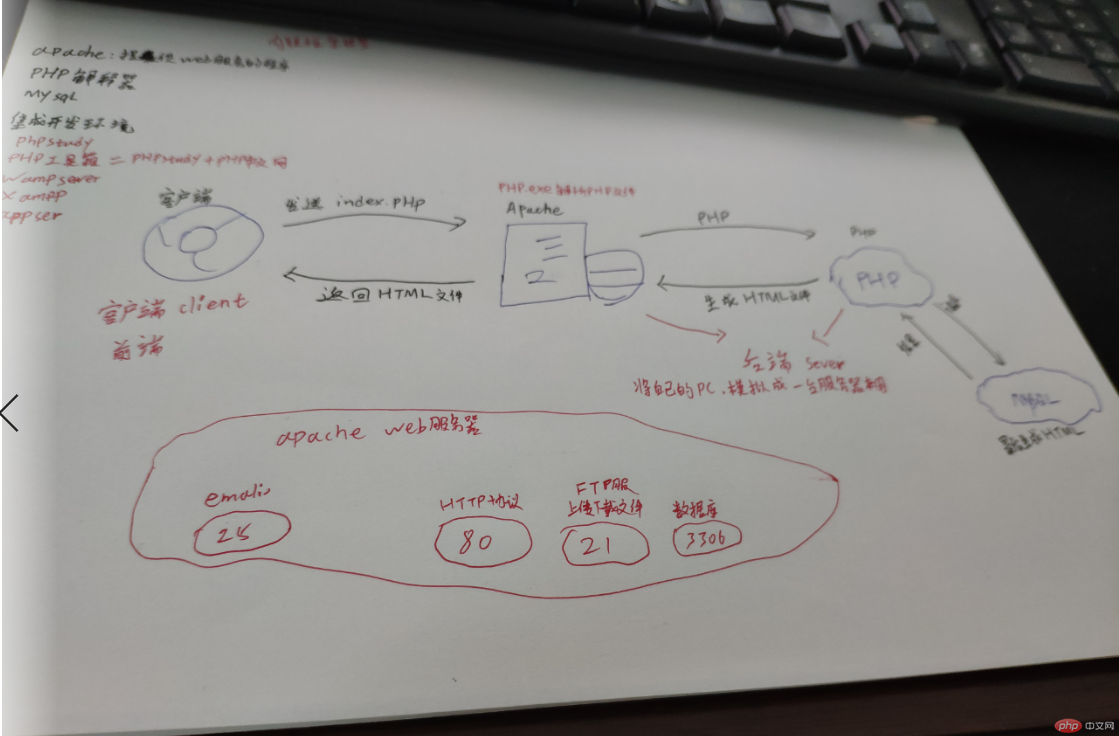 apache: 提供web服务的程序
PHP解释器
MySQL
集成开发环境
phpstudy
PHP工具箱 = PHPstudy + PHP中文网
Wampserver
Xampp
appser
客户端
发送 index.php
返回HTML文件
客户端 client
前端
PHP.exe 解析PHP文件
Apache
PHP
生成HTML文件
PHP
PHP
后端 sever
将自己的PC，模拟成一台服务器来用
MySQL
HTML
apache web服务器
25
HTTP协议
80
FTP服
上传下载文件
21
数据库
3306
php 中文网